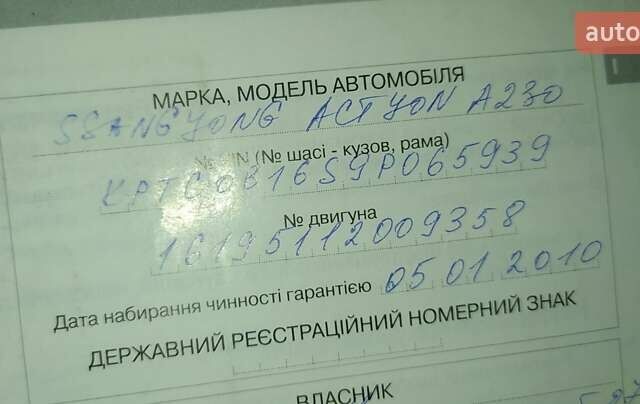 auto
МАРКА, МОДЕЛЬ АВТОМОБІЛЯ
SSANGYONG ACTYON A230
№ VIN (№ шасі - кузов, рама)
KPTC0B16S9P065939
№ двигуна
16195112009358
Дата набирання чинності гарантією 05.01.2010
ДЕРЖАВНИЙ РЕЄСТРАЦІЙНИЙ НОМЕРНИЙ ЗНАК
ВЛАСНИК